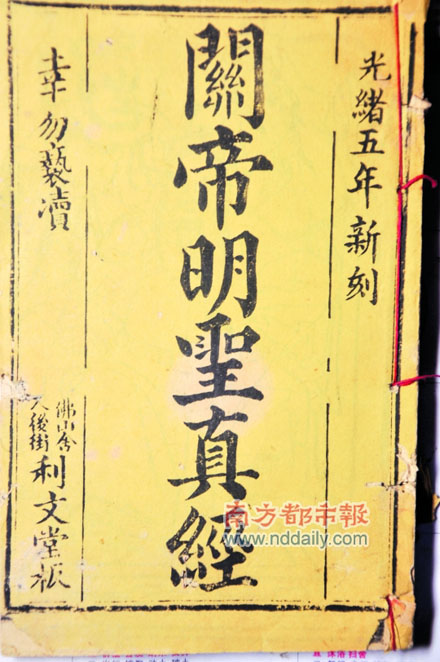 光緒五年新刻
關帝明聖真經
幸勿褻瀆
佛山舍
人後街
利文堂板
南方都市報
www.nddaily.com